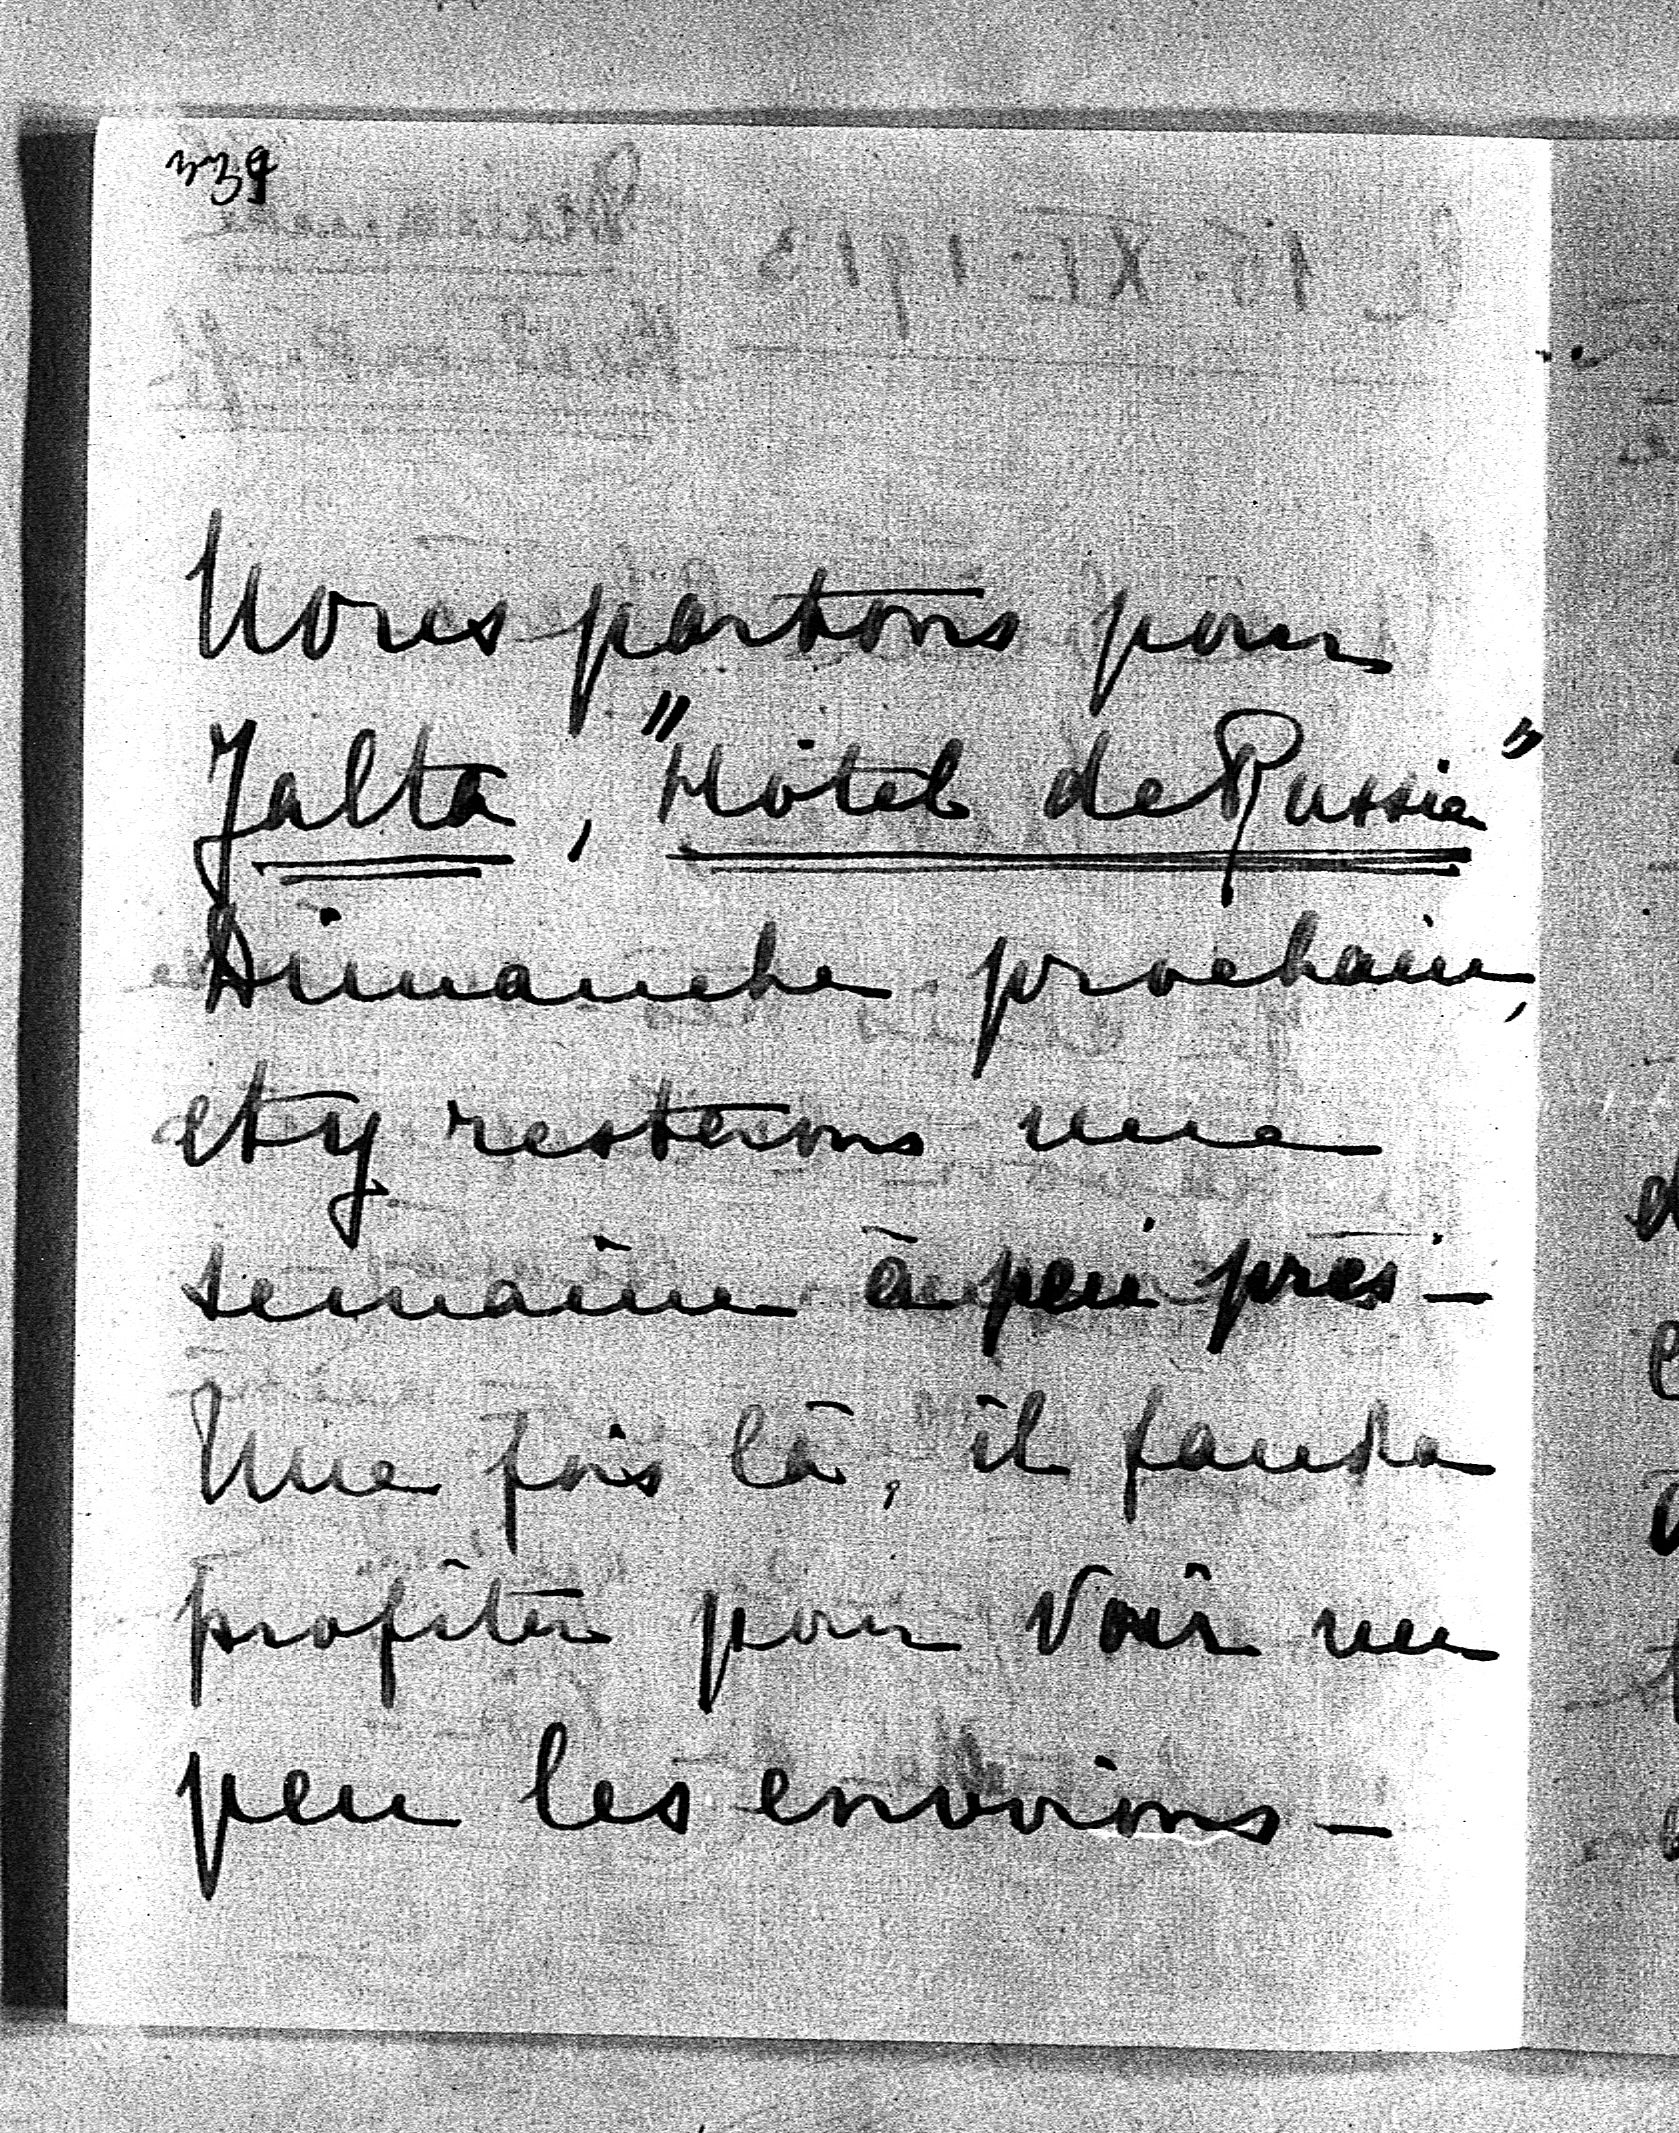 Nous partons pour
Jalta, "Hôtel de Russie"
Dimanche prochain,
et y resterons une
semaine à peu près –
Une fois là, il faudra
profiter pour voir un
peu les environs –